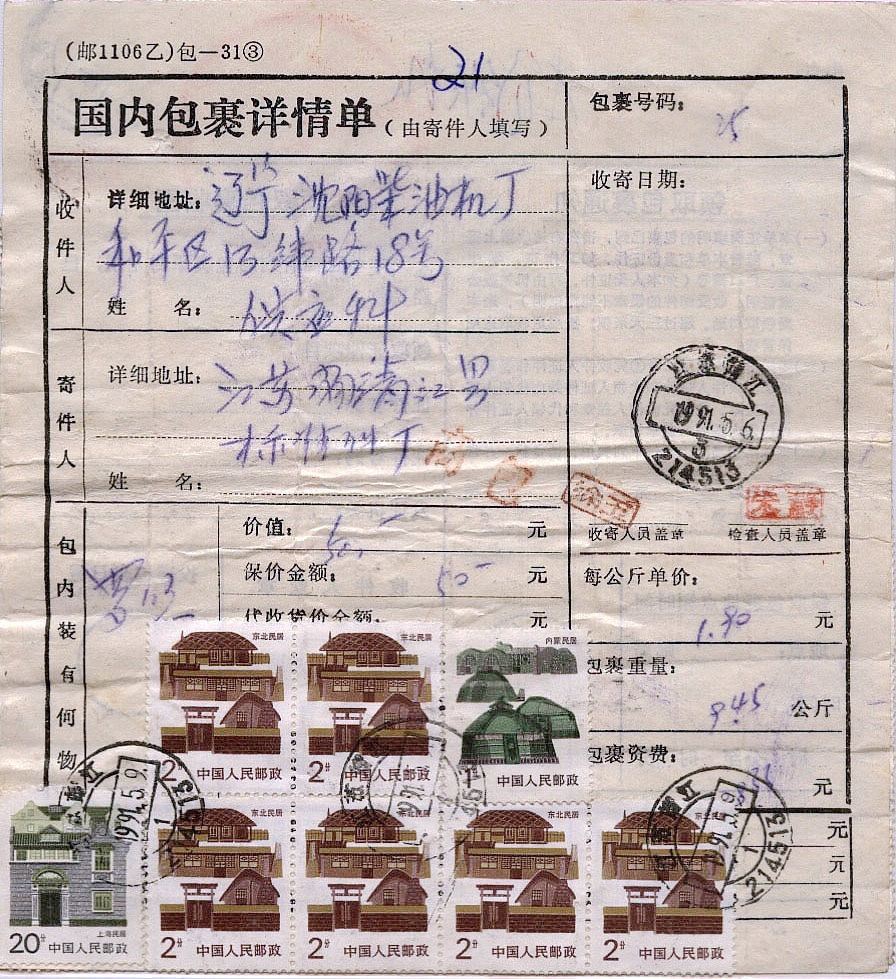 (邮1106乙)包—31③
21
国内包裹详情单(由寄件人填写)
包裹号码:
25
收件人
详细地址:辽宁沈阳柴油机厂
和平区13纬路18号
姓 名:供应科
收寄日期:
寄件人
详细地址:江苏
姓 名:
江苏靖江
1991.5.6
3
214513
商
包
收寄人员盖章
检查人员盖章
包内装有何物
价值: 50. 元
保价金额: 50 元
代收货价金额: 元
每公斤单价:
1.90 元
包裹重量:
9.45 公斤
包裹资费:
元
元
元
元
东北民居
2分 中国人民邮政
东北民居
2分 中国人民邮政
内蒙民居
中国人民邮政
上海民居
20分 中国人民邮政
东北民居
2分 中国人民邮政
东北民居
2分 中国人民邮政
东北民居
2分 中国人民邮政
东北民居
2分 中国人民邮政
1991.5.9
1
214513
江苏靖江
1991.5.9
1
214513